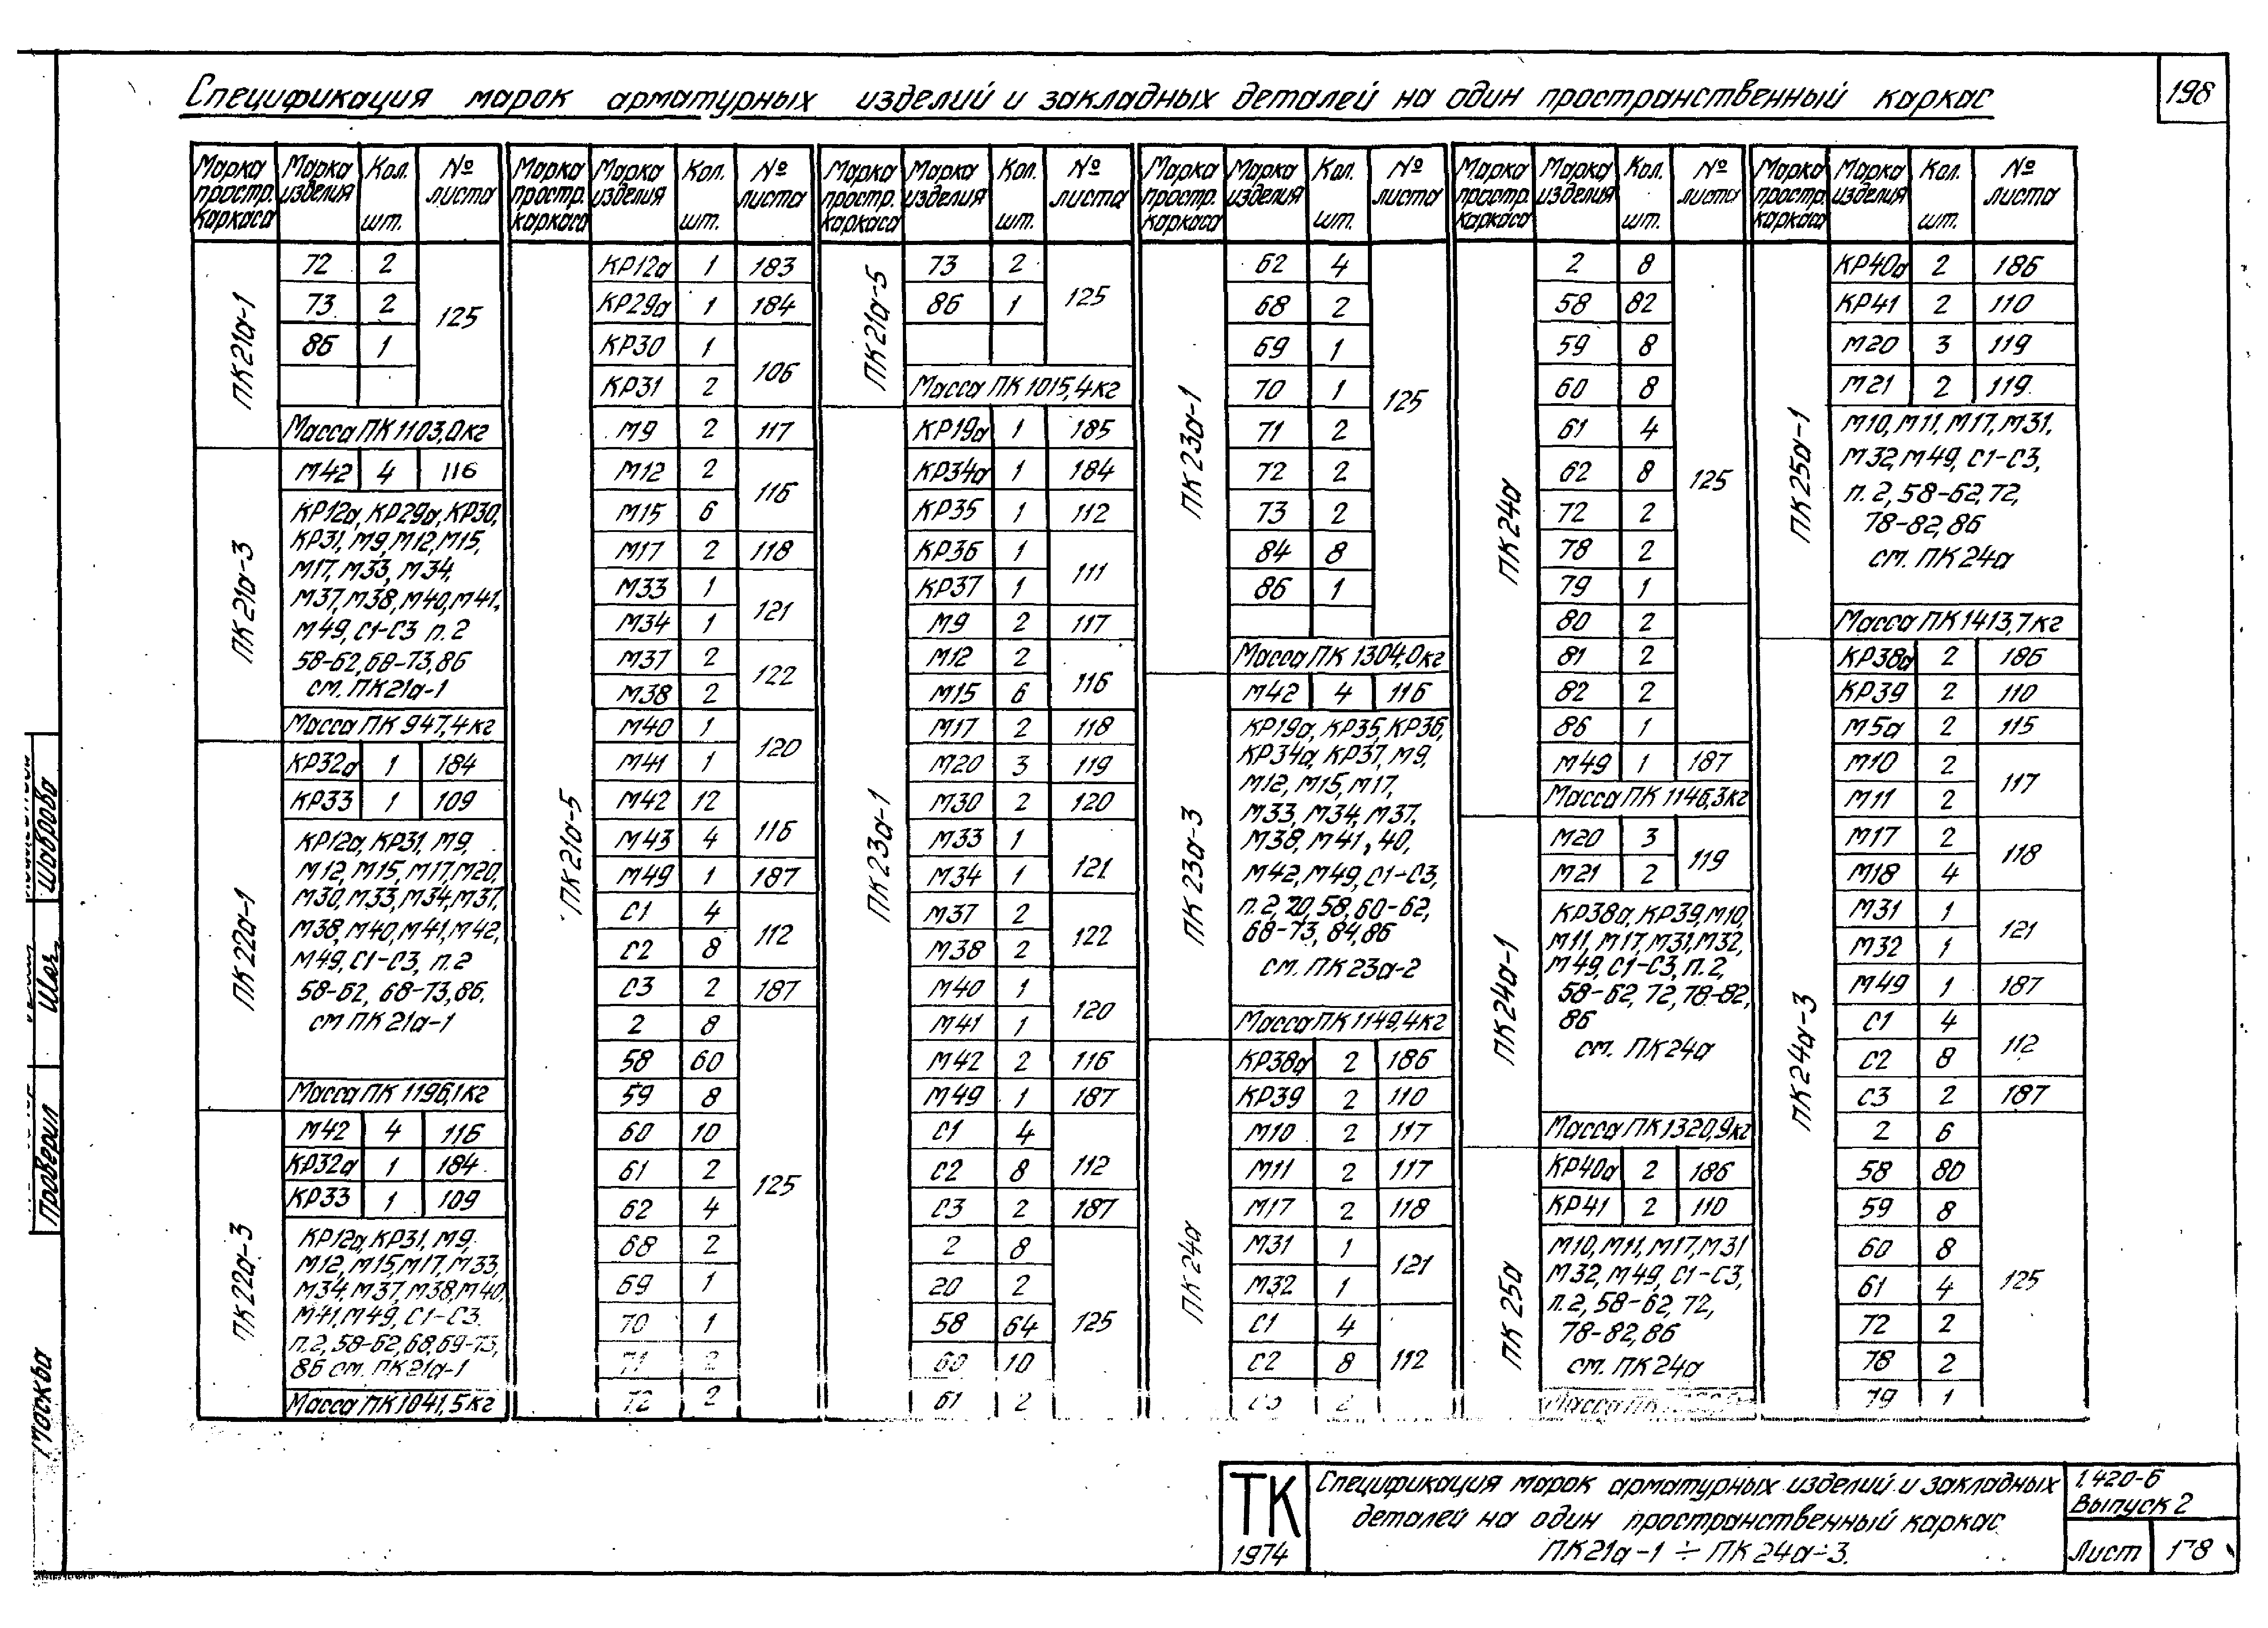 198
Спецификация марок арматурных изделий и закладных деталей на один пространственный каркас
Марка простр. каркаса Марка изделия Кол. шт. № листа
ПК21а-1
72 2 125
73 2
86 1
Масса ПК 1103,0кг
ПК21а-3
М42 4 116
КР12а, КР29а, КР30,
КР31, М9, М12, М15,
М17, М33, М34,
М37, М38, М40, М41,
М49, С1-С3 п.2
58-62, 68-73, 86
см. ПК21а-1
Масса ПК 947,4кг
ПК22а-1
КР32а 1 184
КР33 1 109
КР12а, КР31, М9,
М12, М15, М17, М20,
М30, М33, М34, М37,
М38, М40, М41, М42,
М49, С1-С3, п.2
58-62, 68-73, 86,
см ПК21а-1
Масса ПК 1196,1кг
ПК22а-3
М42 4 116
КР32а 1 184
КР33 1 109
КР12а, КР31, М9,
М12, М15, М17, М33,
М34, М37, М38, М40,
М41, М49, С1-С3.
п.2, 58-62, 68, 69-73,
86 см. ПК21а-1
Масса ПК 1041,5кг
Марка простр. каркаса Марка изделия Кол. шт. № листа
ПК21а-5
КР12а 1 183
КР29а 1 184
КР30 1 106
КР31 2
М9 2 117
М12 2 116
М15 6
М17 2 118
М33 1 121
М34 1
М37 2 122
М38 2
М40 1 120
М41 1
М42 12 116
М43 4
М49 1 187
С1 4 112
С2 8
С3 2 187
2 8 125
58 60
59 8
60 10
61 2
62 4
68 2
69 1
70 1
71 2
72 2
Марка простр. каркаса Марка изделия Кол. шт. № листа
ПК21а-5
73 2 125
86 1
Масса ПК 1015,4кг
ПК23а-1
КР19а 1 185
КР34а 1 184
КР35 1 112
КР36 1 111
КР37 1
М9 2 117
М12 2 116
М15 6
М17 2 118
М20 3 119
М30 2 120
М33 1 121
М34 1
М37 2 122
М38 2
М40 1 120
М41 1
М42 2 116
М49 1 187
С1 4 112
С2 8
С3 2 187
2 8 125
20 2
58 64
60 10
61 2
Марка простр. каркаса Марка изделия Кол. шт. № листа
ПК23а-1
62 4 125
68 2
69 1
70 1
71 2
72 2
73 2
84 8
86 1
Масса ПК 1304,0кг
ПК23а-3
М42 4 116
КР19а, КР35, КР36,
КР34а, КР37, М9,
М12, М15, М17,
М33, М34, М37,
М38, М41, 40,
М42, М49, С1-С3,
п.2, 20, 58, 60-62,
68-73, 84, 86
см. ПК23а-2
Масса ПК 1149,4кг
ПК24а
КР38а 2 186
КР39 2 110
М10 2 117
М11 2 117
М17 2 118
М31 1 121
М32 1
С1 4 112
С2 8
Марка простр. каркаса Марка изделия Кол. шт. № листа
ПК24а
2 8 125
58 82
59 8
60 8
61 4
62 8
72 2
78 2
79 1
80 2
81 2
82 2
86 1
М49 1 187
Масса ПК 1146,3кг
ПК24а-1
М20 3 119
М21 2
КР38а, КР39, М10,
М11, М17, М31, М32,
М49, С1-С3, п.2,
58-62, 72, 78-82,
86
см. ПК24а
Масса ПК 1320,9кг
ПК25а
КР40а 2 186
КР41 2 110
М10, М11, М17, М31
М32, М49, С1-С3,
п.2, 58-62, 72,
78-82, 86
см. ПК24а
Масса ПК
Марка простр. каркаса Марка изделия Кол. шт. № листа
ПК25а-1
КР40а 2 186
КР41 2 110
М20 3 119
М21 2 119
М10, М11, М17, М31,
М32, М49, С1-С3,
п.2, 58-62, 72,
78-82, 86
см. ПК24а
Масса ПК 1413,7кг
ПК24а-3
КР38а 2 186
КР39 2 110
М5а 2 115
М10 2 117
М11 2
М17 2 118
М18 4
М31 1 121
М32 1
М49 1 187
С1 4 112
С2 8
С3 2 187
2 6 125
58 80
59 8
60 8
61 4
72 2
78 2
79 1
Шаброва
Проверил
Москва
ТК
1974
Спецификация марок арматурных изделий и закладных
деталей на один пространственный каркас
ПК21а-1 ÷ ПК24а-3.
1.420-6
Выпуск 2
Лист 178